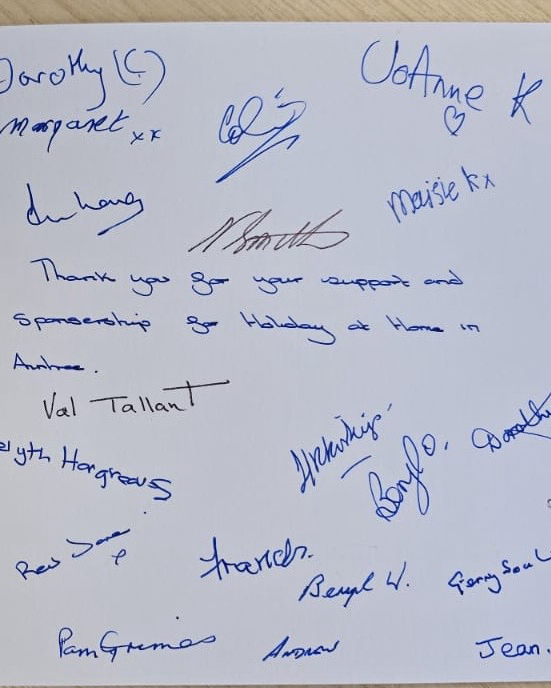 Dorothy (C)
JoAnne K
Margaret xx
Colin
Maisie K x
N Smith
Thank you for your support and
sponsership for Holiday at Home in
Aintree.
Val Tallant
Hargreaves
Beryl O.
Dorothy
Rev Jane
Francis.
Beryl W.
Gerry Soul
Pam Grimes
Andrew
Jean.